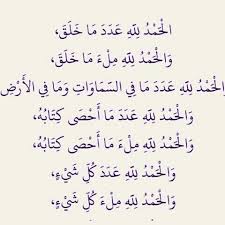 الْحَمْدُ لِلَّهِ عَدَدَ مَا خَلَقَ،
وَالْحَمْدُ لِلَّهِ مِلْءَ مَا خَلَقَ،
الْحَمْدُ لِلَّهِ عَدَدَ مَا فِي السَّمَاوَاتِ وَمَا فِي الأَرْضِ
وَالْحَمْدُ لِلَّهِ عَدَدَ مَا أَحْصَى كِتَابُهُ،
وَالْحَمْدُ لِلَّهِ مِلْءَ مَا أَحْصَى كِتَابُهُ،
وَالْحَمْدُ لِلَّهِ عَدَدَ كُلِّ شَيْءٍ،
وَالْحَمْدُ لِلَّهِ مِلْءَ كُلِّ شَيْءٍ،